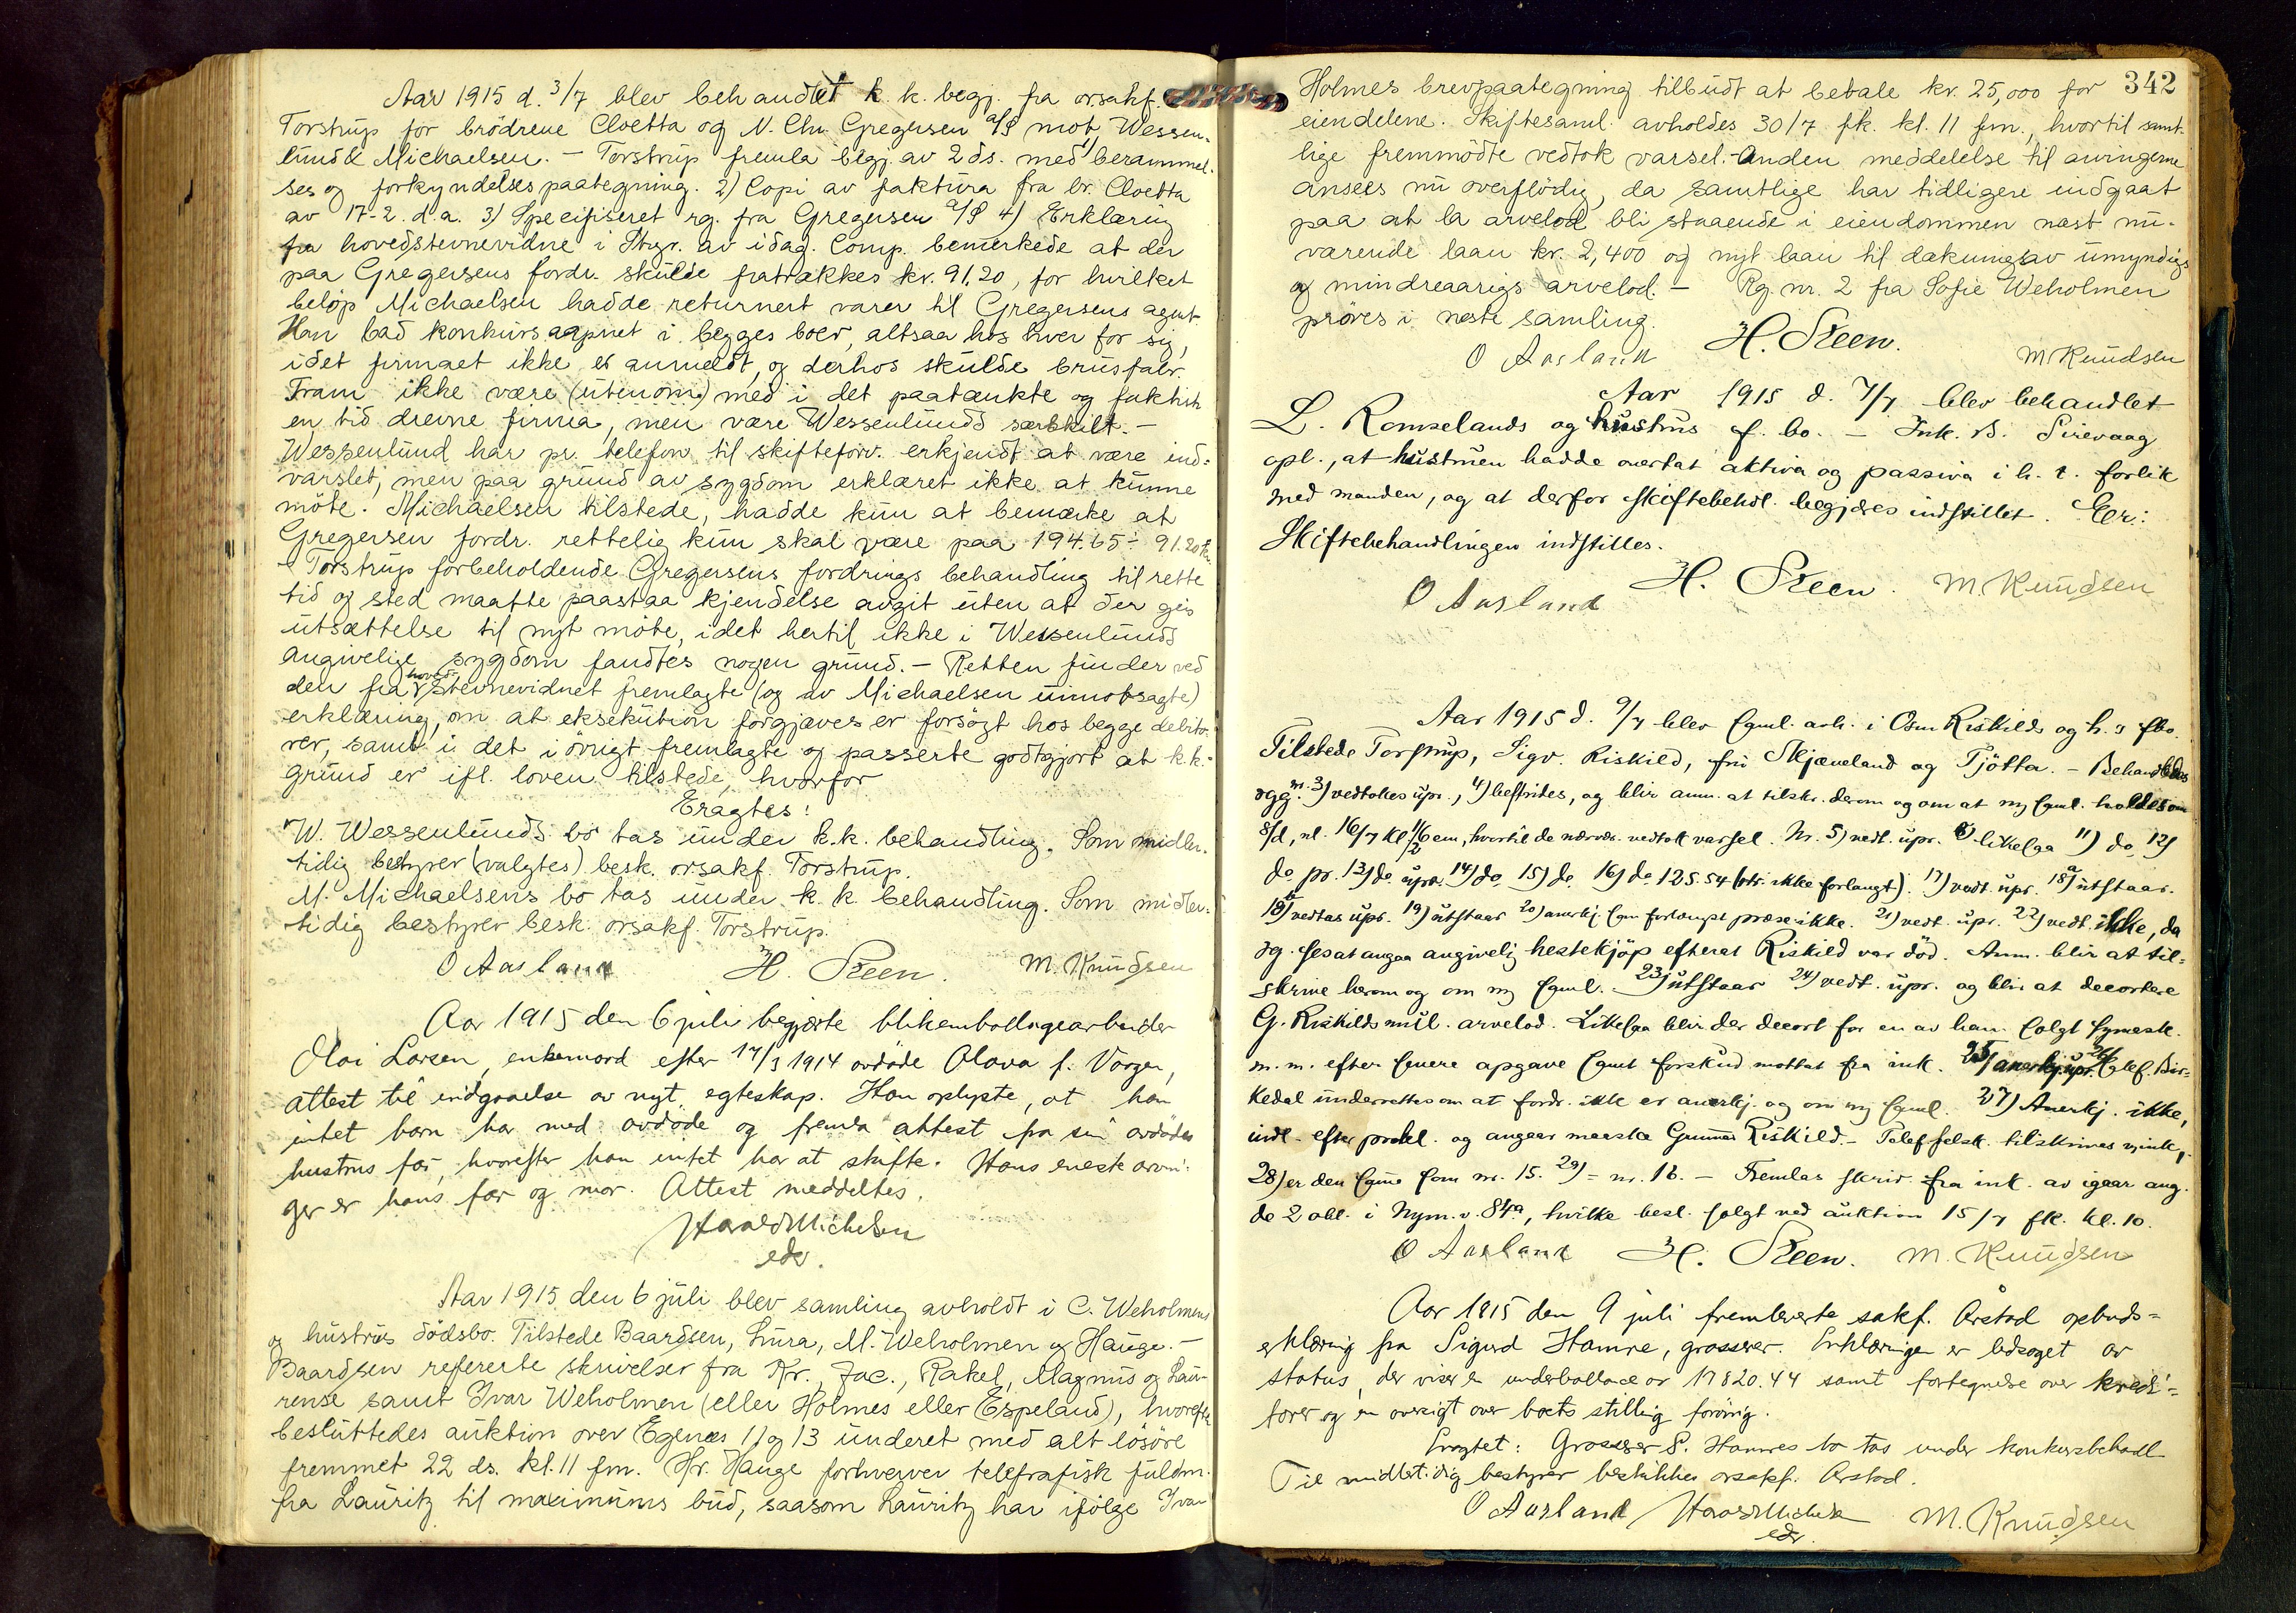 Aar 1915 d. 3/7 blev behandlet k. k. begj. fra orsakf.
Torstrup for brödrene Cloetta og N. Chr. Gregersen a/S mot Wessen-
lund & Michaelsen. - Torstrup fremla begj. av 2 ds. med berammel-
ses og forkyndelsespaategning. 2) Copi av faktura fra br. Cloetta
av 17-2. d.a. 3) Specifiseret rg. fra Gregersen a/S 4) Erklæring
fra hovedstevnevidne i Stvgr. av idag. Comp. bemerkede at der
paa Gregersens fordr. skulde fratrækkes kr. 91,20, for hvilket
belöp Michaelsen hadde returnert varer til Gregersens agent.
Han bad konkurs aapnet i begges boer, altsaa hos hver for sig,
idet firmaet ikke er anmeldt, og derhos skulde brusfabr.
Fram ikke være (utenom) med i det paatænkte og faktisk
en tid drevne firma, men være Wessenlunds særskilt. -
Wessenlund har pr. telefon til skifteforv. erkjendt at være ind-
varslet, men paa grund av sygdom erklæret ikke at kunne
möte. Michaelsen tilstede, hadde kun at bemærke at
Gregersen fordr. rettelig kun skal være paa 194.65 ÷ 91.20 kr.
- Torstrup forbeholdende Gregersens fordrings behandling til rette
tid og sted maatte paastaa kjendelse avgit uten at der gis
utsættelse til nyt möte, idet hertil ikke i Wessenlunds
angivelige sygdom fandtes nogen grund. - Retten finder ved
den fra hovedstevnevidnet fremlagte (og av Michaelsen uimotsagte)
erklæring, om at eksekution forgjæves er forsögt hos begge debito-
rer, samt i det i övrigt fremlagte og passerte godtgjort at k.k.-
grund er ifl. loven tilstede, hvorfor
Eragtes:
W. Wessenlunds bo tas under k.k. behandling. Som midler-
tidig bestyrer (valgtes) besk. orsakf. Torstrup.
M. Michaelsens bo tas under k. k. behandling. Som midler-
tidig bestyrer besk. orsakf. Torstrup.
O Aasland H. Steen. M. Knudsen
Aar 1915 den 6 juli begjærte blikemballagearbeider
Olai Larsen, enkemand efter 17/3 1914 avdöde Olava f. Vorgen,
attest til indgaaelse av nyt egteskap. Han oplyste, at han
intet barn har med avdöde og fremla attest fra sin avdödes
hustrus far, hvorefter han intet har at skifte. Hans eneste arvin-
ger er hans far og mor. Attest meddeltes.
Harald Michelsen
edv.
Aar 1915 den 6 juli blev samling avholdt i C. Weholmens
og hustrus dödsbo. Tilstede Baardsen, Lura, M. Weholmen og Hauge. -
Baardsen refererte skrivelser fra Kr., Jac., Rakel, Magnus og Lau-
rense samt Ivar Weholmen (eller Holmes eller Espeland), hvorefter
besluttedes auktion over Egenes 11 og 13 underet med alt lösöre
fremmet 22 ds. kl. 11 fm. Hr. Hauge forhverver telegrafisk fuldm.
fra Lauritz til maximums bud, saasom Lauritz har ifölge Ivar
342
Holmes brevpaategning tilbudt at betale kr. 25,000 for
eiendelene. Skiftesaml. avholdes 30/7 fk. kl. 11 fm., hvortil samt-
lige fremmödte vedtok varsel. - Anden meddelelse til arvingerne
ansees nu overflödig, da samtlige har tidligere indgaat
paa at la arvelod bli staaende i eiendommen næst nu-
værende laan kr. 2,400 og nyt laan til dækning av umyndigs
og mindreaarigs arvelod. - Rg. nr. 2 fra Sofie Weholmen
pröves i næste samling.
O Aasland H. Steen. M Knudsen
Aar 1915 d. 7/7 blev behandlet
L. Romselands og hustrus f. bo. - Ink. B. Sirevaag
opl., at hustruen hadde overtat aktiva og passiva i h. t. forlik
med manden, og at derfor skiftebehdl. begjæres indstillet. Er.:
Skiftebehandlingen indstilles.
O Aasland H. Steen. M. Knudsen
Aar 1915 d. 9/7 blev saml. avh. i Osm Riskilds og h. s fbo.
Tilstede Torstrup, Sigv. Riskild, fru Skjæveland og Tjötta. - Behandledes
rgg. nr. 3) vedtokes upr., 4) bestrides, og blir anm. at tilskr. derom og om at ny saml. holdes om
8/d, nl. 16/7 kl 1/2 6 em, hvortil de nærvær. vedtok varsel. Nr. 5) vedt. upr. 6) likesaa 11) do. 12)
do pr. 13) do upr. 14) do 15) do 16) do 125.54 (ikke forlangt). 17) vedt. upr. 18a) utstaar.
18b) vedtas upr. 19) utstaar 20) anerkj. som forlangt præs. ikke. 21) vedt. upr. 22) vedt. ikke, da
rg. sees at angaa angivelig hestekjöp efterat Riskild var död. Anm. blir at til-
skrive herom og om ny saml. 23) utstaar 24) vedt. upr. og blir at decortere
G. Riskilds mul. arvelod. Likesaa blir der decort for en av ham solgt symask.
m. m. efter senere opgave samt forskud mottat fra ink. 25) anerkj. upr. 26) Telef. Bir-
kedal underrettes om at fordr. ikke er anerkj. og om ny saml. 27) Anerkj. ikke,
indl. efter prokl. og angaar maaske Gunnar Riskild. - Telefselsk. tilskrives
28) er den samme som nr. 15. 29) = nr. 16. - Fremlas skriv. fra ink. av igaar ang.
de 2 obl. i Nym. v. 84a, hvilke besl. solgt ved auktion 15/7 fk. kl. 10.
O Aasland H. Steen. M. Knudsen
Aar 1915 den 9 juli fremleverte sakf. Arstad opbuds-
erklæring fra Sigurd Hamre, grosserer. Erklæringen er ledsaget av
status, der viser en underballance av 17820.44 samt fortegnelse over kredi-
torer og en oversigt over boets stilling forövrig.
Eragtet: Grosserer S. Hamres bo tas under konkursbehadl
Til midlertidig bestyrer beskikkes orsakf. Arstad.
O Aasland Harald Michelsen M. Knudsen
edv.